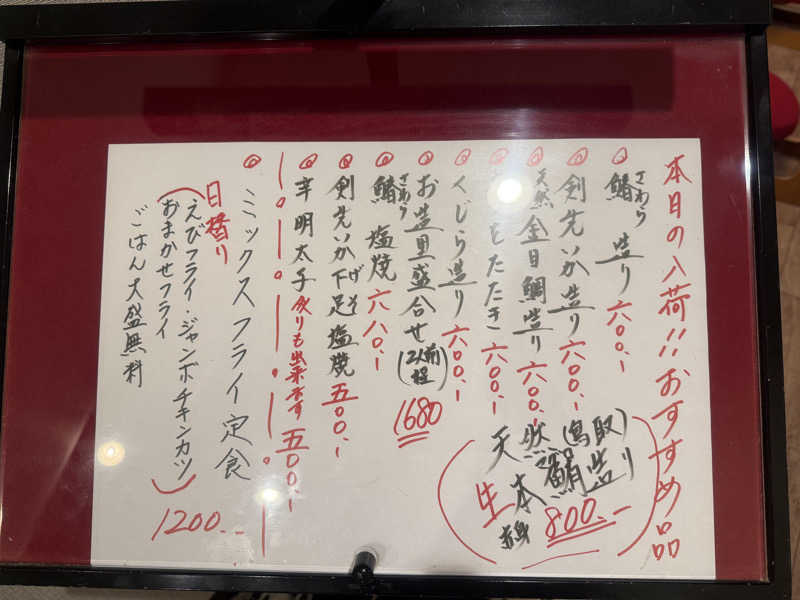 本日の入荷!!おすすめ品
さわら
鰆 造り 六〇〇.-
剣先いか造り 六〇〇.-
天然金目鯛造り 六〇〇.-
たたき 六〇〇.-
くじら造り 六〇〇.-
お造里盛合せ(2人前程) 1680
さわら
鰆 塩焼 六八〇.-
剣先いか下足塩焼 五〇〇.-
げそ
辛明太子 炙りも出来ます 五〇〇.-
天然(鳥取)
生本 造り
赤身 800.-
ミックスフライ定食
日替り
(えびフライ・ジャンボチキンカツ
おまかせフライ)
ごはん大盛無料
1200.-